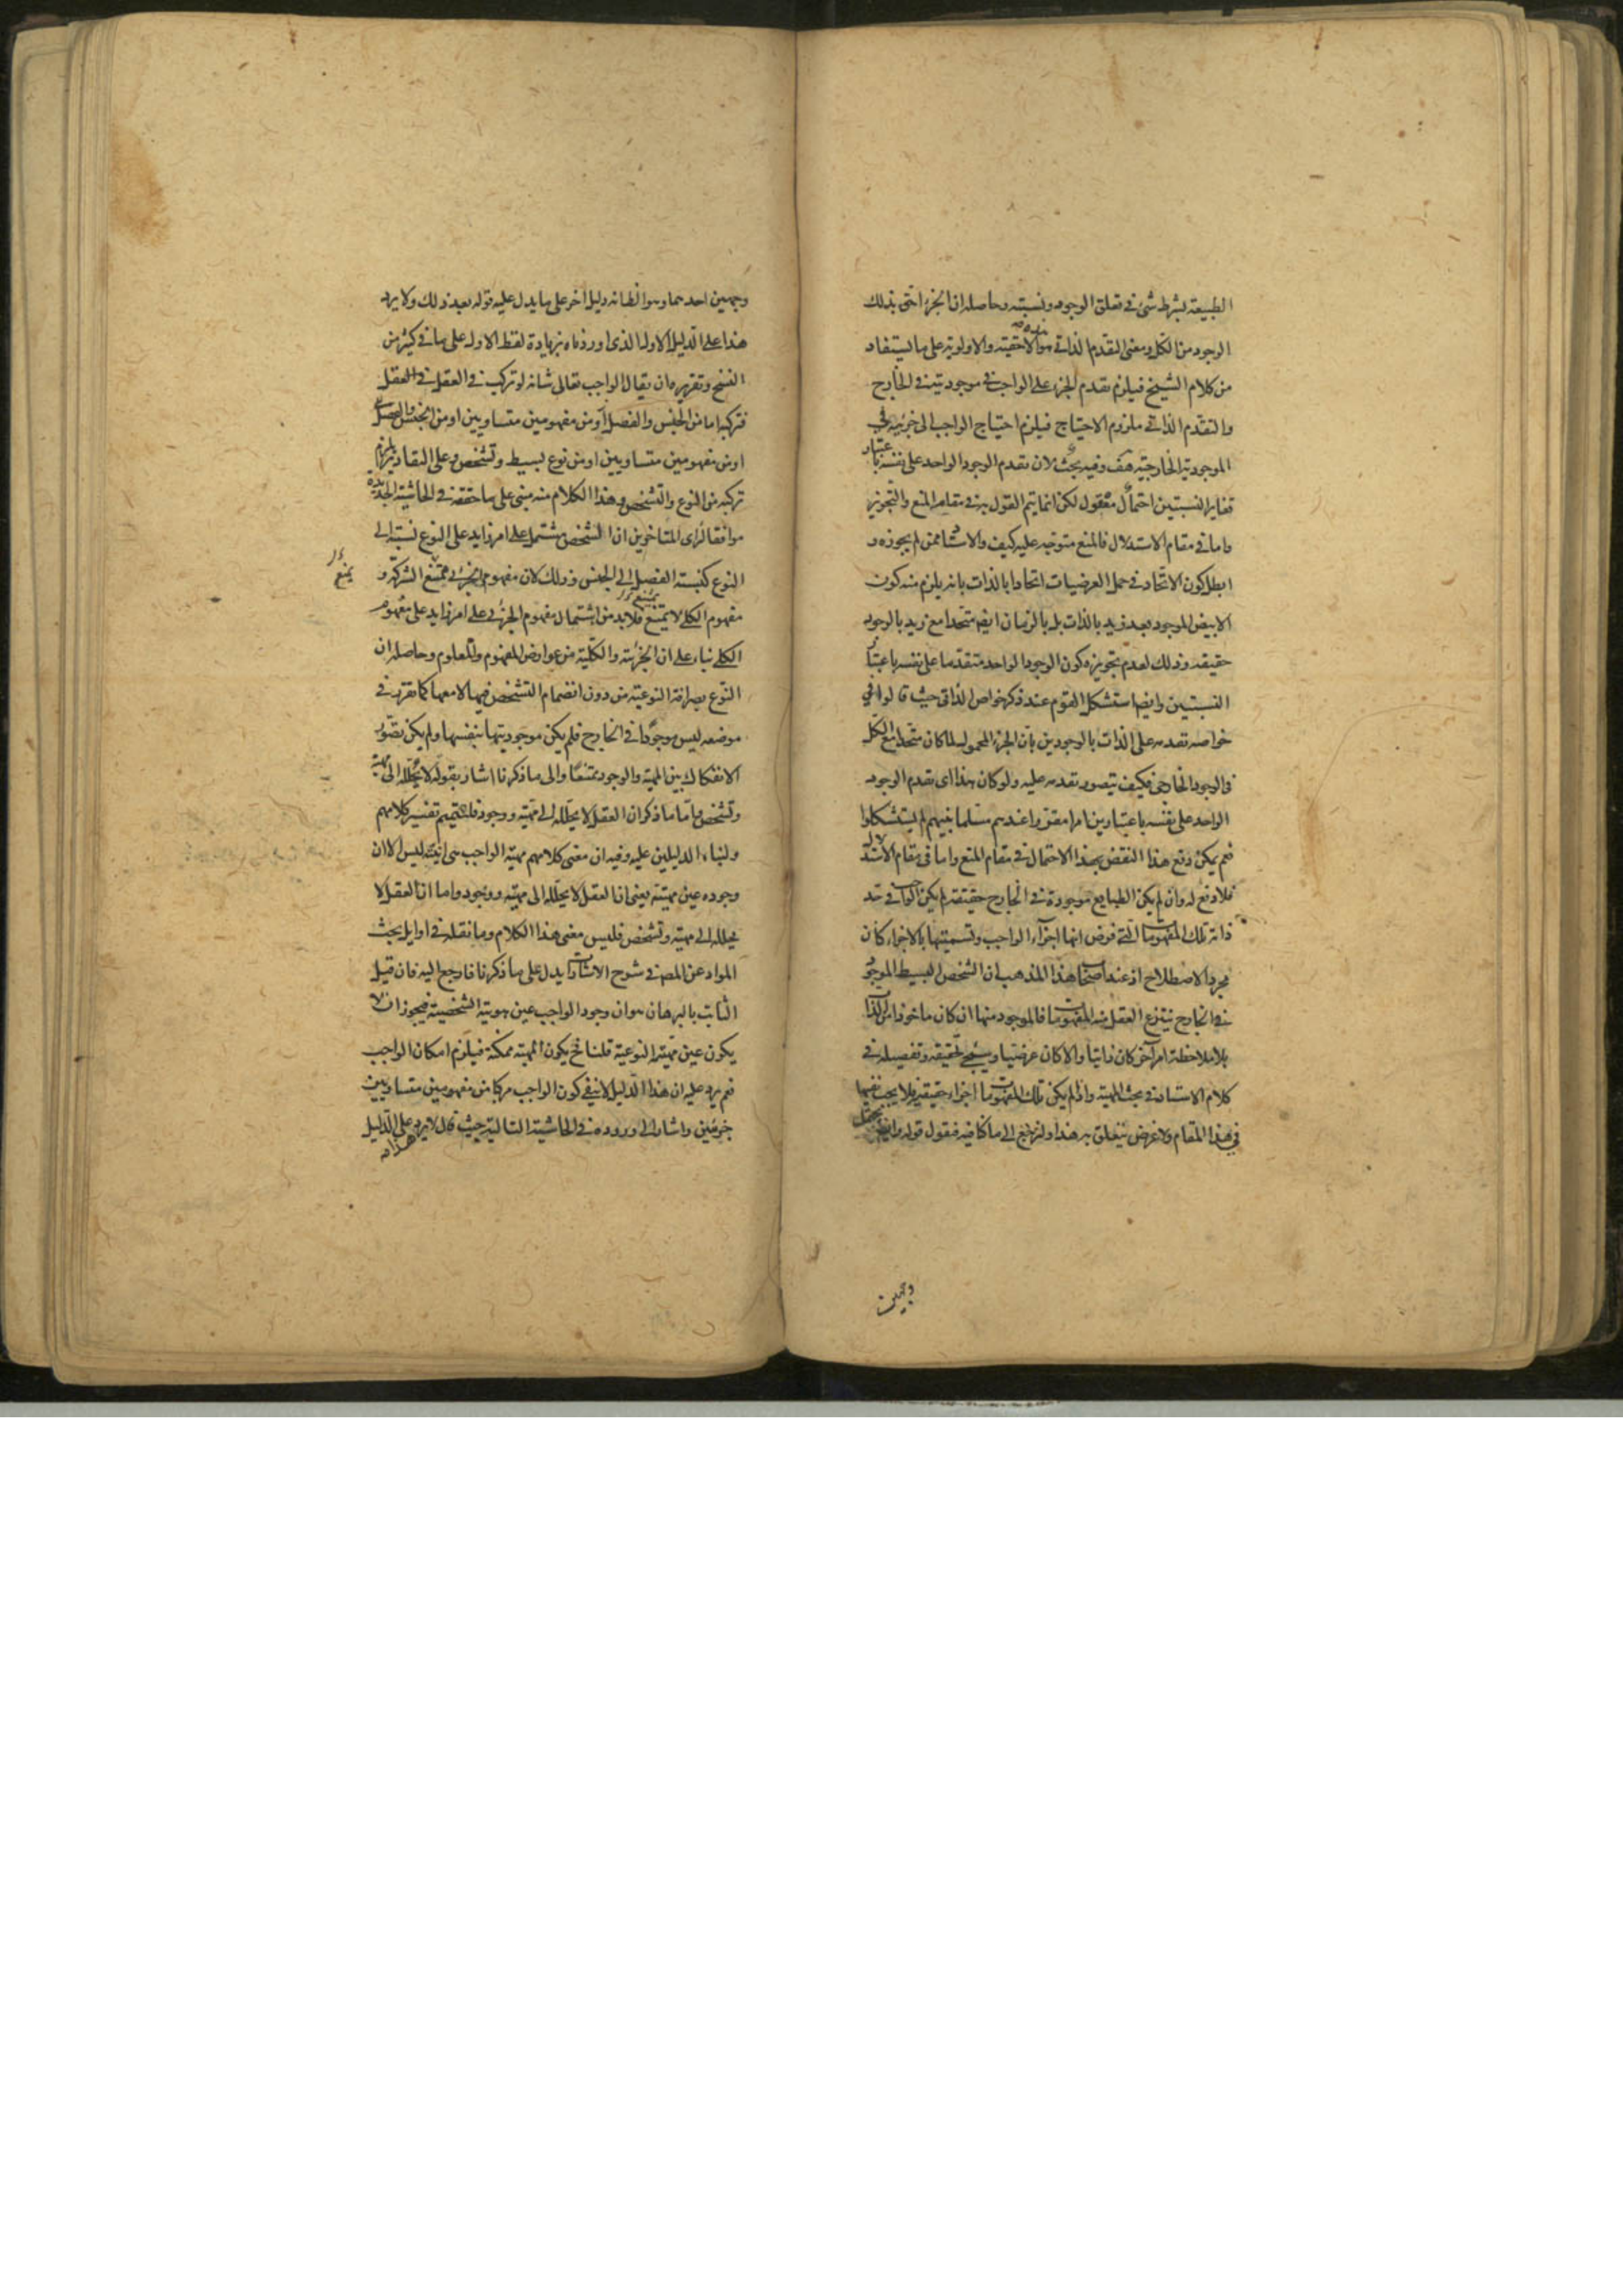 الطبيعة بشرط شئ في تعلق الوجود ونسبته وحاصله ان الجزء احق بذلك
الوجود من الكل ومعنى التقدم الذاتي هو الاحقية والاولوية على ما يستفاد
من كلام الشيخ فيلزم تقدم الجزء على الواجب في موجوديته في الخارج
والتقدم الذاتي ملزوم الاحتياج فيلزم احتياج الواجب الى جزئيه في
الموجودية الخارجية هف وفيه بحث لان تقدم الوجود الواحد على نفسه باعتبار
تغاير النسبتين احتمال معقول لكن انما يتم القول به في مقام المنع والتجويز
واما في مقام الاستدلال فالمنع متوجه عليه كيف والاستاد ممن لم يجوزه و
ابطل كون الاتحاد في حمل العرضيات اتحادا بالذات بانه يلزم منه كون
الابيض الموجود بعد زيد بالذات بل بالزمان ايضا متحدا مع زيد بالوجود
حقيقة وذلك لعدم تجويزه كون الوجود الواحد متقدما على نفسه باعتبار
النسبتين وايضا استشكل القوم عند ذكر خواص الذاتي حيث قالوا في
خواصه تقدمه على الذات بالوجودين بان الجزء المحمول لما كان متحدا مع الكل
في الوجود الخارجي فكيف يتصور تقدمه عليه ولو كان هذا اى تقدم الوجود
الواحد على نفسه باعتبارين امرا مقررا عندهم مسلما بينهم لم يستشكلوا
نعم يمكن دفع هذا النقض بهذا الاحتمال في مقام المنع واما في مقام الاستدلال
فلا دفع له وان لم يكن الطبايع موجودة في الخارج حقيقة لم يكن الواجب في حد
ذاته تلك المفهومات التي فرض انها اجزاء الواجب وتسميتها بالاجزاء كان
مجرد الاصطلاح اذ عند اصحاب هذا المذهب ان الشخص البسيط الموجود
في الخارج ينتزع العقل منه المفهومات فالموجود منها ان كان ماخوذا من الذات
بلا ملاحظة امر آخر كان ذاتيا والا كان عرضيا وسيجئ تحقيقه وتفصيله في
كلام الاستاد في بحث المهية واذا لم يكن تلك المفهومات اجزاء حقيقية فلا يجب نفيها
في هذا المقام ولا غرض يتعلق به هذا ولنرجع الى ما كنا فيه فنقول قوله وايضا يحتمل
وجهين
وجهين احدهما وهو الظاهر انه دليل اخر على ما يدل عليه قوله بعد ذلك ولا يرد
هذا على الدليل الاول الذى اوردناه بزيادة لفظ الاول على ما في كثير من
النسخ وتقريره ان يقال الواجب تعالى شانه لو تركب في العقل في العقل
فتركبه اما من الجنس والفصل او من مفهومين متساويين او من الجنس والفصل
او من مفهومين متساويين او من نوع بسيط وتشخص وعلى التقادير يلزم
تركبه من النوع والتشخص وهذا الكلام منه مبنى على ما حققه في الحاشية الجديدة
موافقا لراى المتاخرين ان الشخص مشتمل على امر زايد على النوع نسبته الى
النوع كنسبة الفصل الى الجنس وذلك لان مفهوم الجزئي يمتنع الشركة و
يمنع
مفهوم الكلي لا يمتنع فلابد من اشتمال مفهوم الجزئي على امر زايد على مفهوم
الكلي بناء على ان الجزئية والكلية من عوارض المفهوم والمعلوم وحاصله ان
النوع بصرافة النوعية من دون انضمام التشخص فيها لا معها كما تقرر في
موضعه ليس موجودا في الخارج فلم يكن موجوديتها بنفسها ولم يكن تصور
الانفكاك بين المهية والوجود ممتنعا والى ما ذكرنا اشار بقوله لا يحلله الى مهية
وتشخص واما ما ذكر ان العقل لا يحلله الى مهية ووجود فلتتميم تفسير كلامهم
ولبناء الدليلين عليه وفيه ان معنى كلامهم مهية الواجب هى انيته ليس الا ان
وجوده عين مهيته يعنى ان العقل لا يحلله الى مهية ووجود واما ان العقل لا
يحلله الى مهية وتشخص فليس معنى هذا الكلام وما نقله في اوايل بحث
المواد عن المصنف في شرح الاشارات يدل على ما ذكرنا فارجع اليه فان قيل
الثابت بالبرهان هو ان وجود الواجب عين هويته الشخصية فيجوز ان لا
يكون عين مهيته النوعية قلنا فح يكون المهية ممكنة فيلزم امكان الواجب
نعم يرد عليه ان هذا الدليل لا ينفى كون الواجب مركبا من مفهومين متساويين
جزئيين واشار الى وروده في الحاشية التالية حيث قال لا يرد على الدليل
هذا